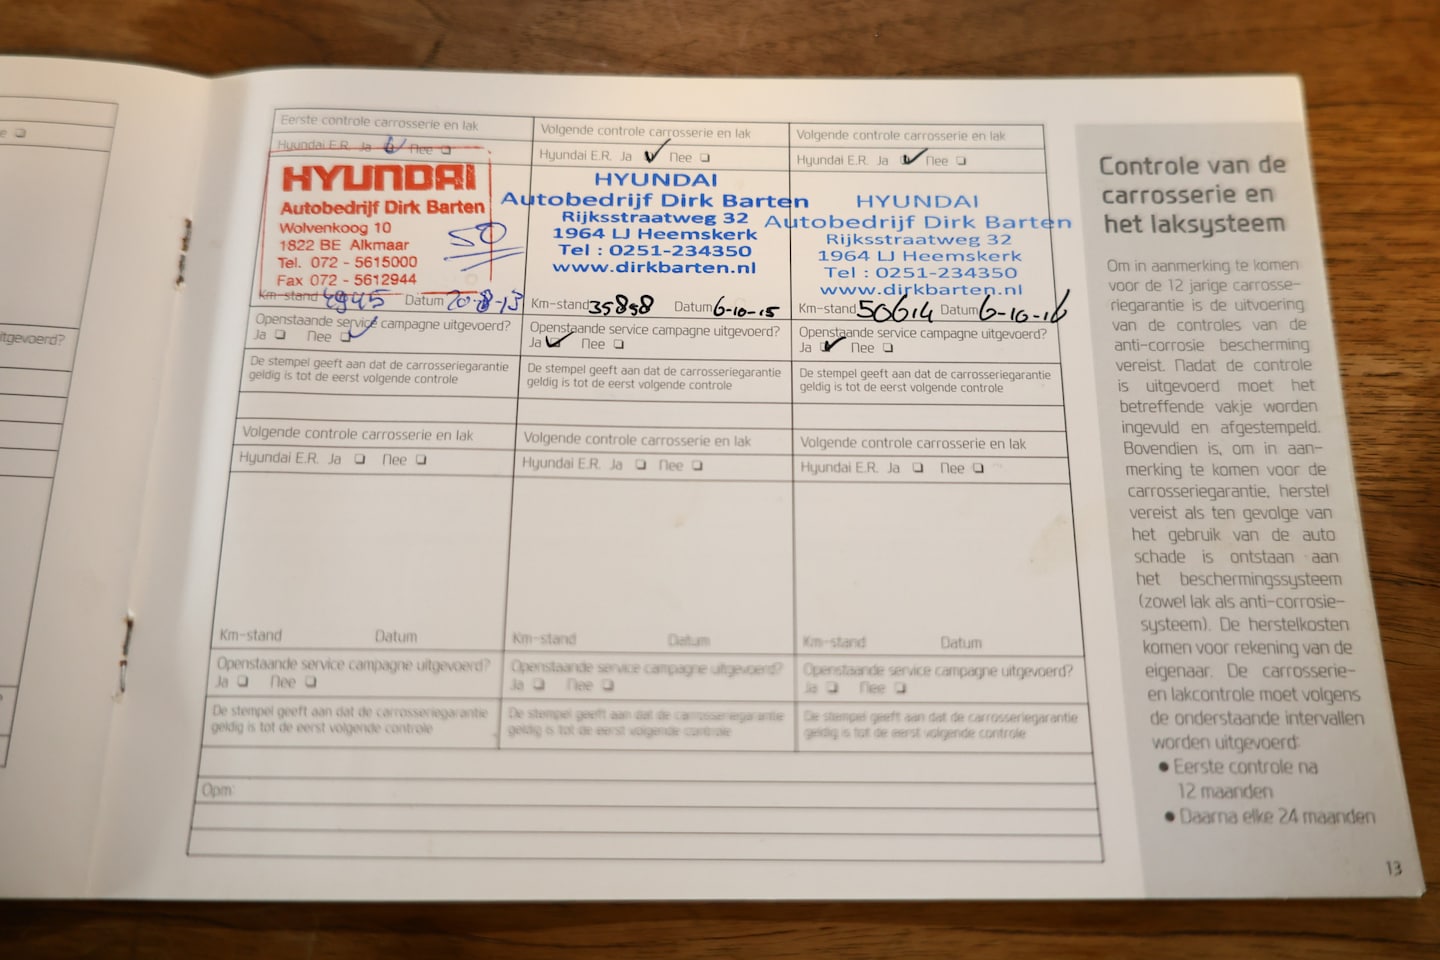 e ❏
tgevoerd?
Eerste controle carrosserie en lak
Hyundai E.R. Ja Nee ❏
HYUNDAI
Autobedrijf Dirk Barten
Wolvenkoog 10
1822 BE Alkmaar
Tel. 072 - 5615000
Fax 072 - 5612944
Km-stand Datum 20-8-13
Openstaande service campagne uitgevoerd?
Ja ❏ Nee ❏
De stempel geeft aan dat de carrosseriegarantie
geldig is tot de eerst volgende controle
Volgende controle carrosserie en lak
Hyundai E.R. Ja ✓ Nee ❏
HYUNDAI
Autobedrijf Dirk Barten
Rijksstraatweg 32
1964 LJ Heemskerk
Tel : 0251-234350
www.dirkbarten.nl
Km-stand 35858 Datum 6-10-15
Openstaande service campagne uitgevoerd?
Ja ✓ Nee ❏
De stempel geeft aan dat de carrosseriegarantie
geldig is tot de eerst volgende controle
Volgende controle carrosserie en lak
Hyundai E.R. Ja ✓ Nee ❏
HYUNDAI
Autobedrijf Dirk Barten
Rijksstraatweg 32
1964 LJ Heemskerk
Tel : 0251-234350
www.dirkbarten.nl
Km-stand 50614 Datum 6-10-16
Openstaande service campagne uitgevoerd?
Ja ✓ Nee ❏
De stempel geeft aan dat de carrosseriegarantie
geldig is tot de eerst volgende controle
Volgende controle carrosserie en lak
Hyundai E.R. Ja ❏ Nee ❏
Km-stand Datum
Openstaande service campagne uitgevoerd?
Ja ❏ Nee ❏
De stempel geeft aan dat de carrosseriegarantie
geldig is tot de eerst volgende controle
Volgende controle carrosserie en lak
Hyundai E.R. Ja ❏ Nee ❏
Km-stand Datum
Openstaande service campagne uitgevoerd?
Ja ❏ Nee ❏
De stempel geeft aan dat de carrosseriegarantie
geldig is tot de eerst volgende controle
Volgende controle carrosserie en lak
Hyundai E.R. Ja ❏ Nee ❏
Km-stand Datum
Openstaande service campagne uitgevoerd?
Ja ❏ Nee ❏
De stempel geeft aan dat de carrosseriegarantie
geldig is tot de eerst volgende controle
Opm:
Controle van de
carrosserie en
het laksysteem
Om in aanmerking te komen
voor de 12 jarige carrosse-
riegarantie is de uitvoering
van de controles van de
anti-corrosie bescherming
vereist. Nadat de controle
is uitgevoerd moet het
betreffende vakje worden
ingevuld en afgestempeld.
Bovendien is, om in aan-
merking te komen voor de
carrosseriegarantie, herstel
vereist als ten gevolge van
het gebruik van de auto
schade is ontstaan aan
het beschermingssysteem
(zowel lak als anti-corrosie-
systeem). De herstelkosten
komen voor rekening van de
eigenaar. De carrosserie-
en lakcontrole moet volgens
de onderstaande intervallen
worden uitgevoerd:
● Eerste controle na
12 maanden
● Daarna elke 24 maanden
13